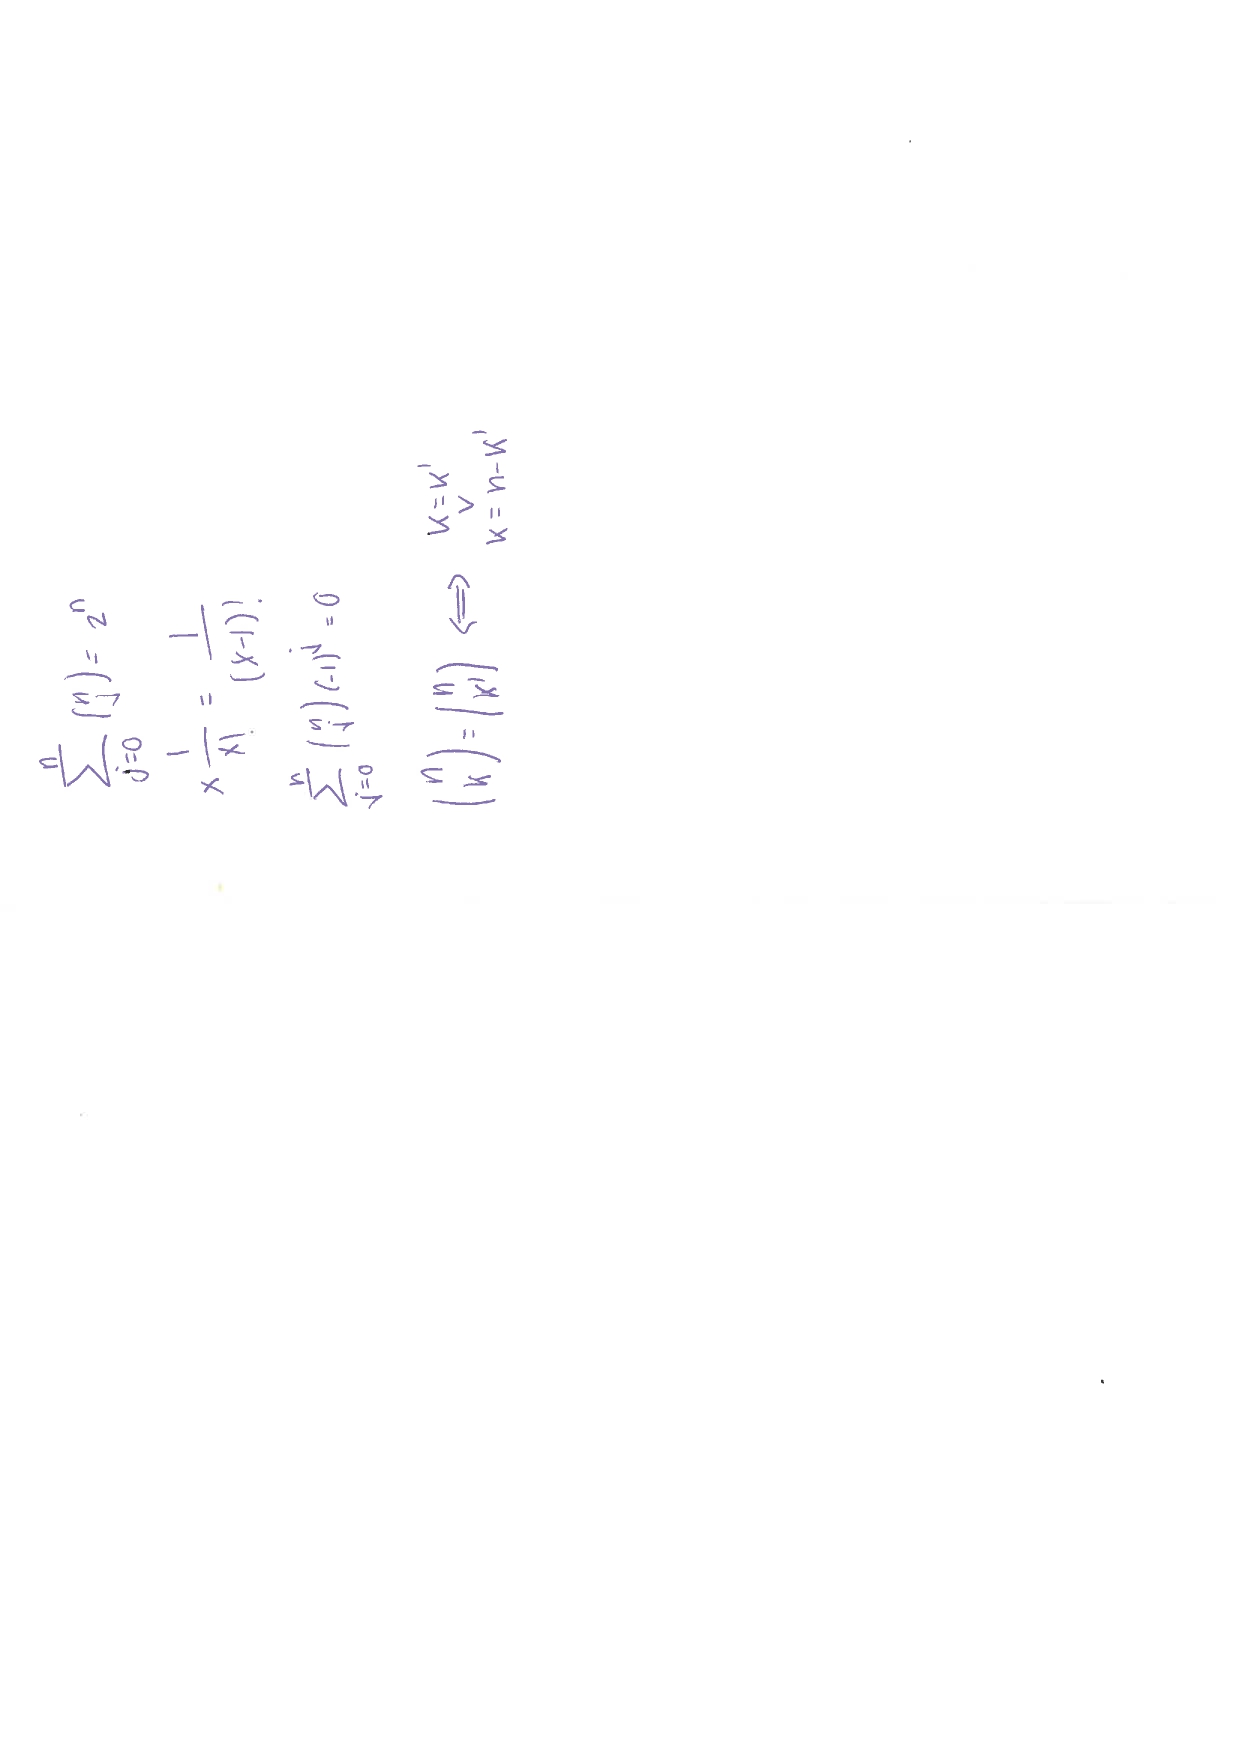 ∑_{j=0}^{n} (n j) = 2^n
x 1/x! = 1/(x-1)!
∑_{j=0}^{n} (n j) (-1)^j = 0
(n k) = (n k') ⟺ k = k' ∨ k = n - k'